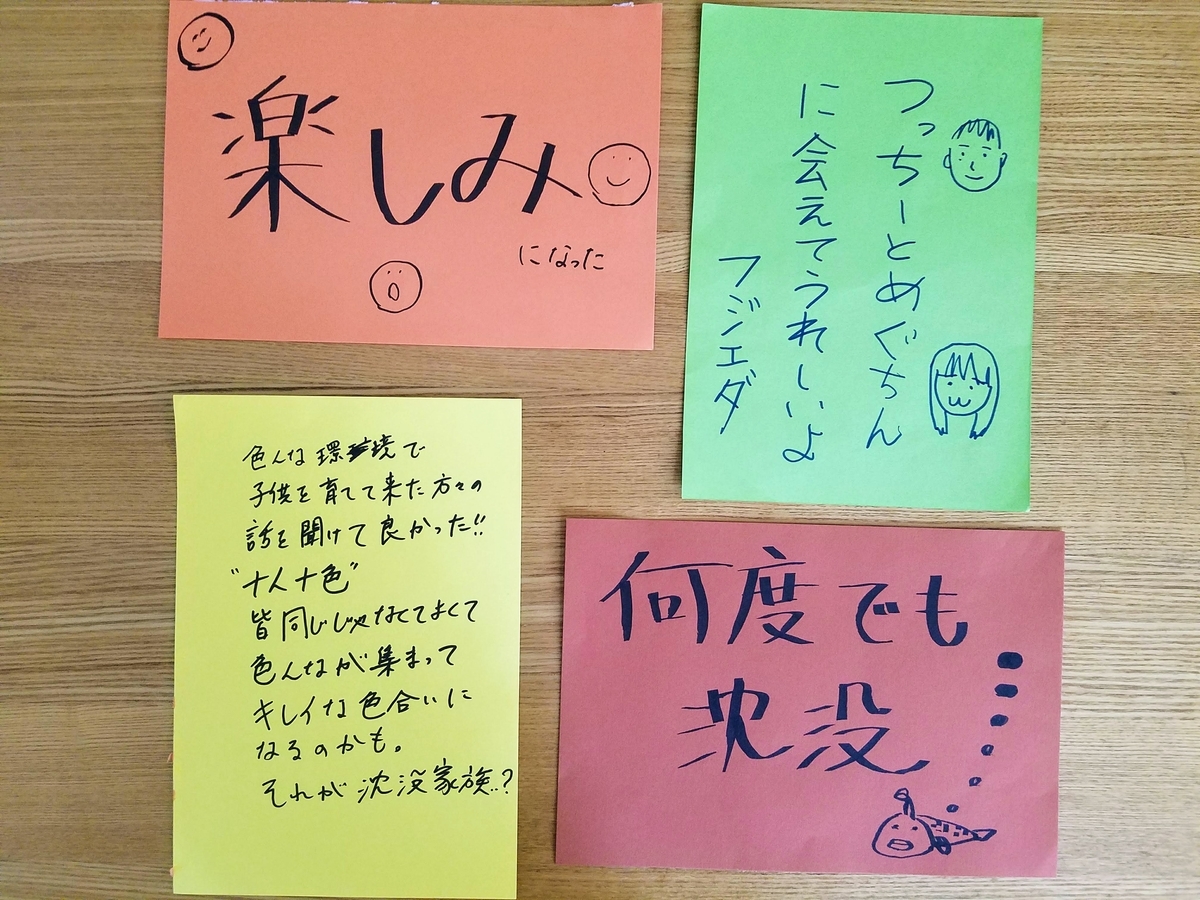 楽しみ
になった
つっちーとめぐちん
に会えてうれしいよ
フジエダ
色んな環境で
子供を育てて来た方々の
話を聞けて良かった!!
"十人十色"
皆同じじゃなくてよくて
色んなが集まって
キレイな色合いに
なるのかも。
それが沈没家族..?
何度でも
沈没